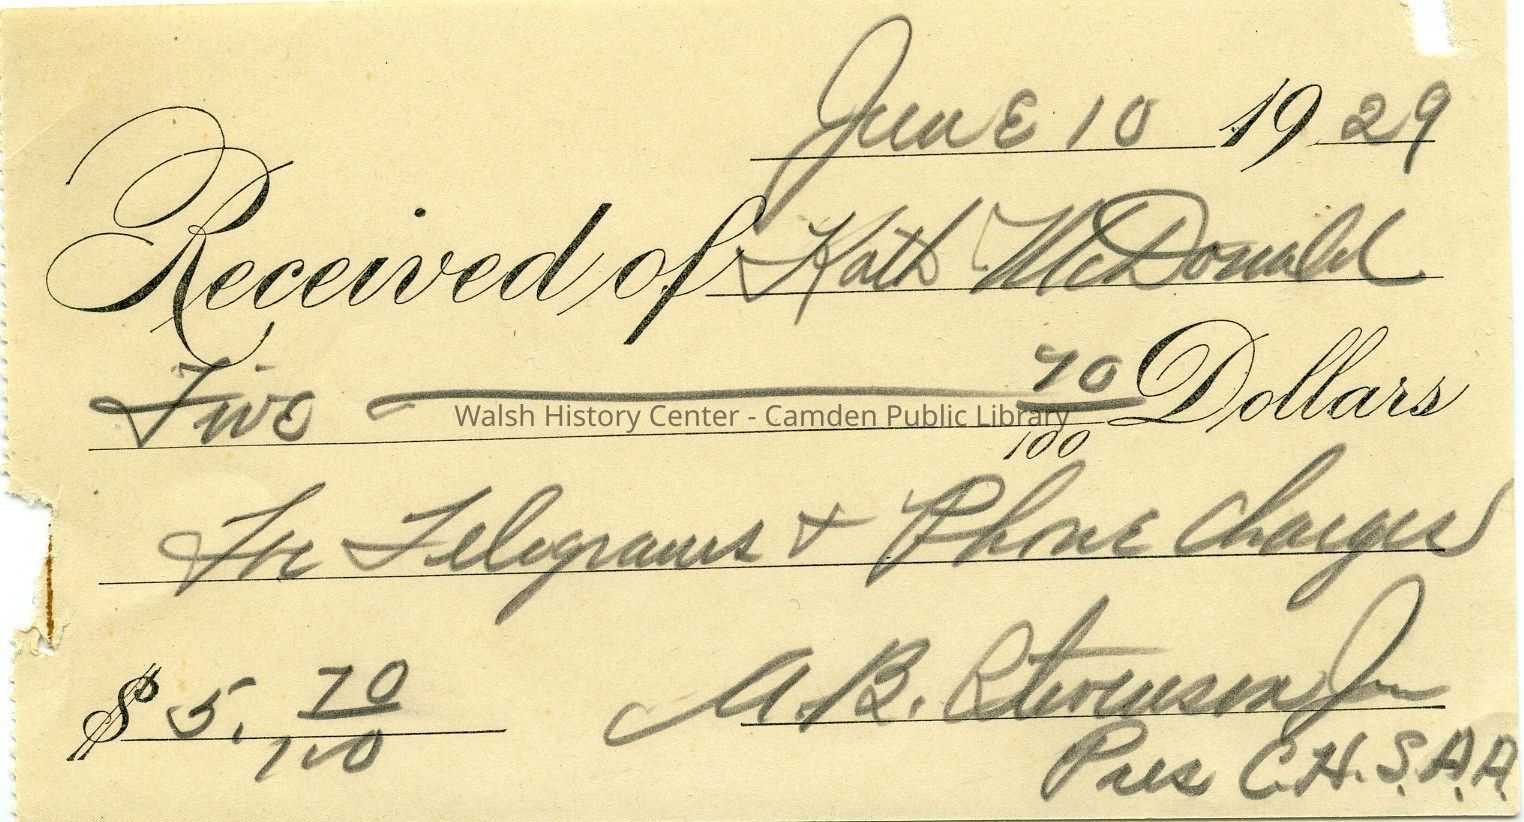 June 10 1929
Received of Kath McDonald
Five 70/100 Dollars
Walsh History Center - Camden Public Library
For Telegrams + Phone Charges
$ 5. 70/100 A. B. Stevenson Jr
Pres C.H.S.A.A.